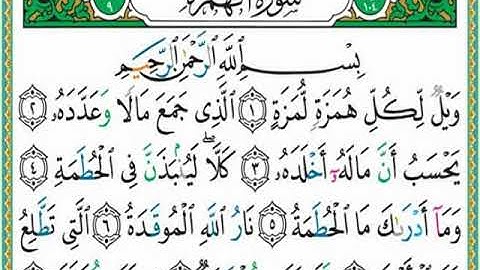 ٩ سُورَةُ الْهُمَزَةِ ١٠٤
بِسْمِ ٱللَّهِ ٱلرَّحْمَٰنِ ٱلرَّحِيمِ
وَيْلٌ لِّكُلِّ هُمَزَةٍ لُّمَزَةٍ ۝١ ٱلَّذِى جَمَعَ مَالًا وَعَدَّدَهُۥ ۝٢
يَحْسَبُ أَنَّ مَالَهُۥٓ أَخْلَدَهُۥ ۝٣ كَلَّا ۖ لَيُنۢبَذَنَّ فِى ٱلْحُطَمَةِ ۝٤
وَمَآ أَدْرَىٰكَ مَا ٱلْحُطَمَةُ ۝٥ نَارُ ٱللَّهِ ٱلْمُوقَدَةُ ۝٦ ٱلَّتِى تَطَّلِعُ